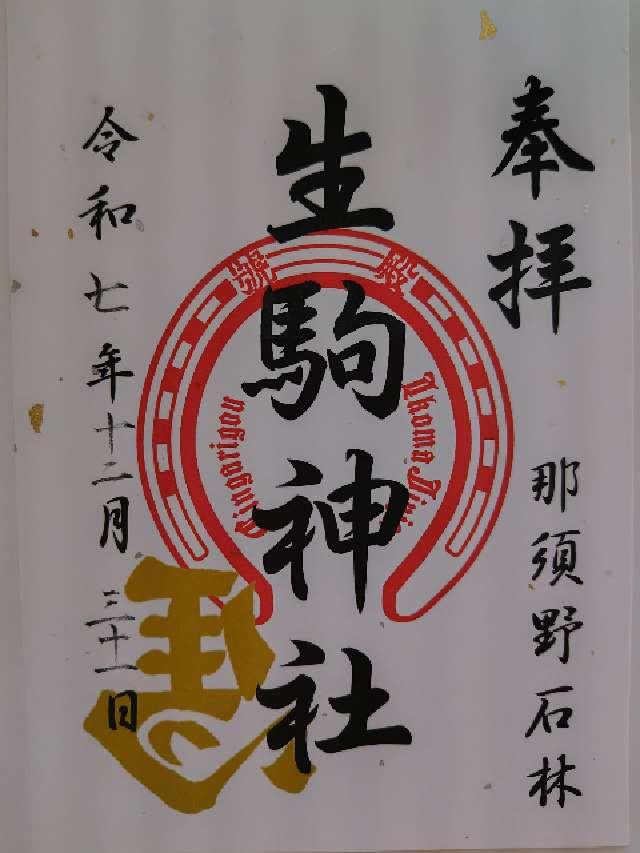 奉拝
那須野石林
生駒神社
殿號
Ikoma Jinja
令和七年十二月三十一日
馬